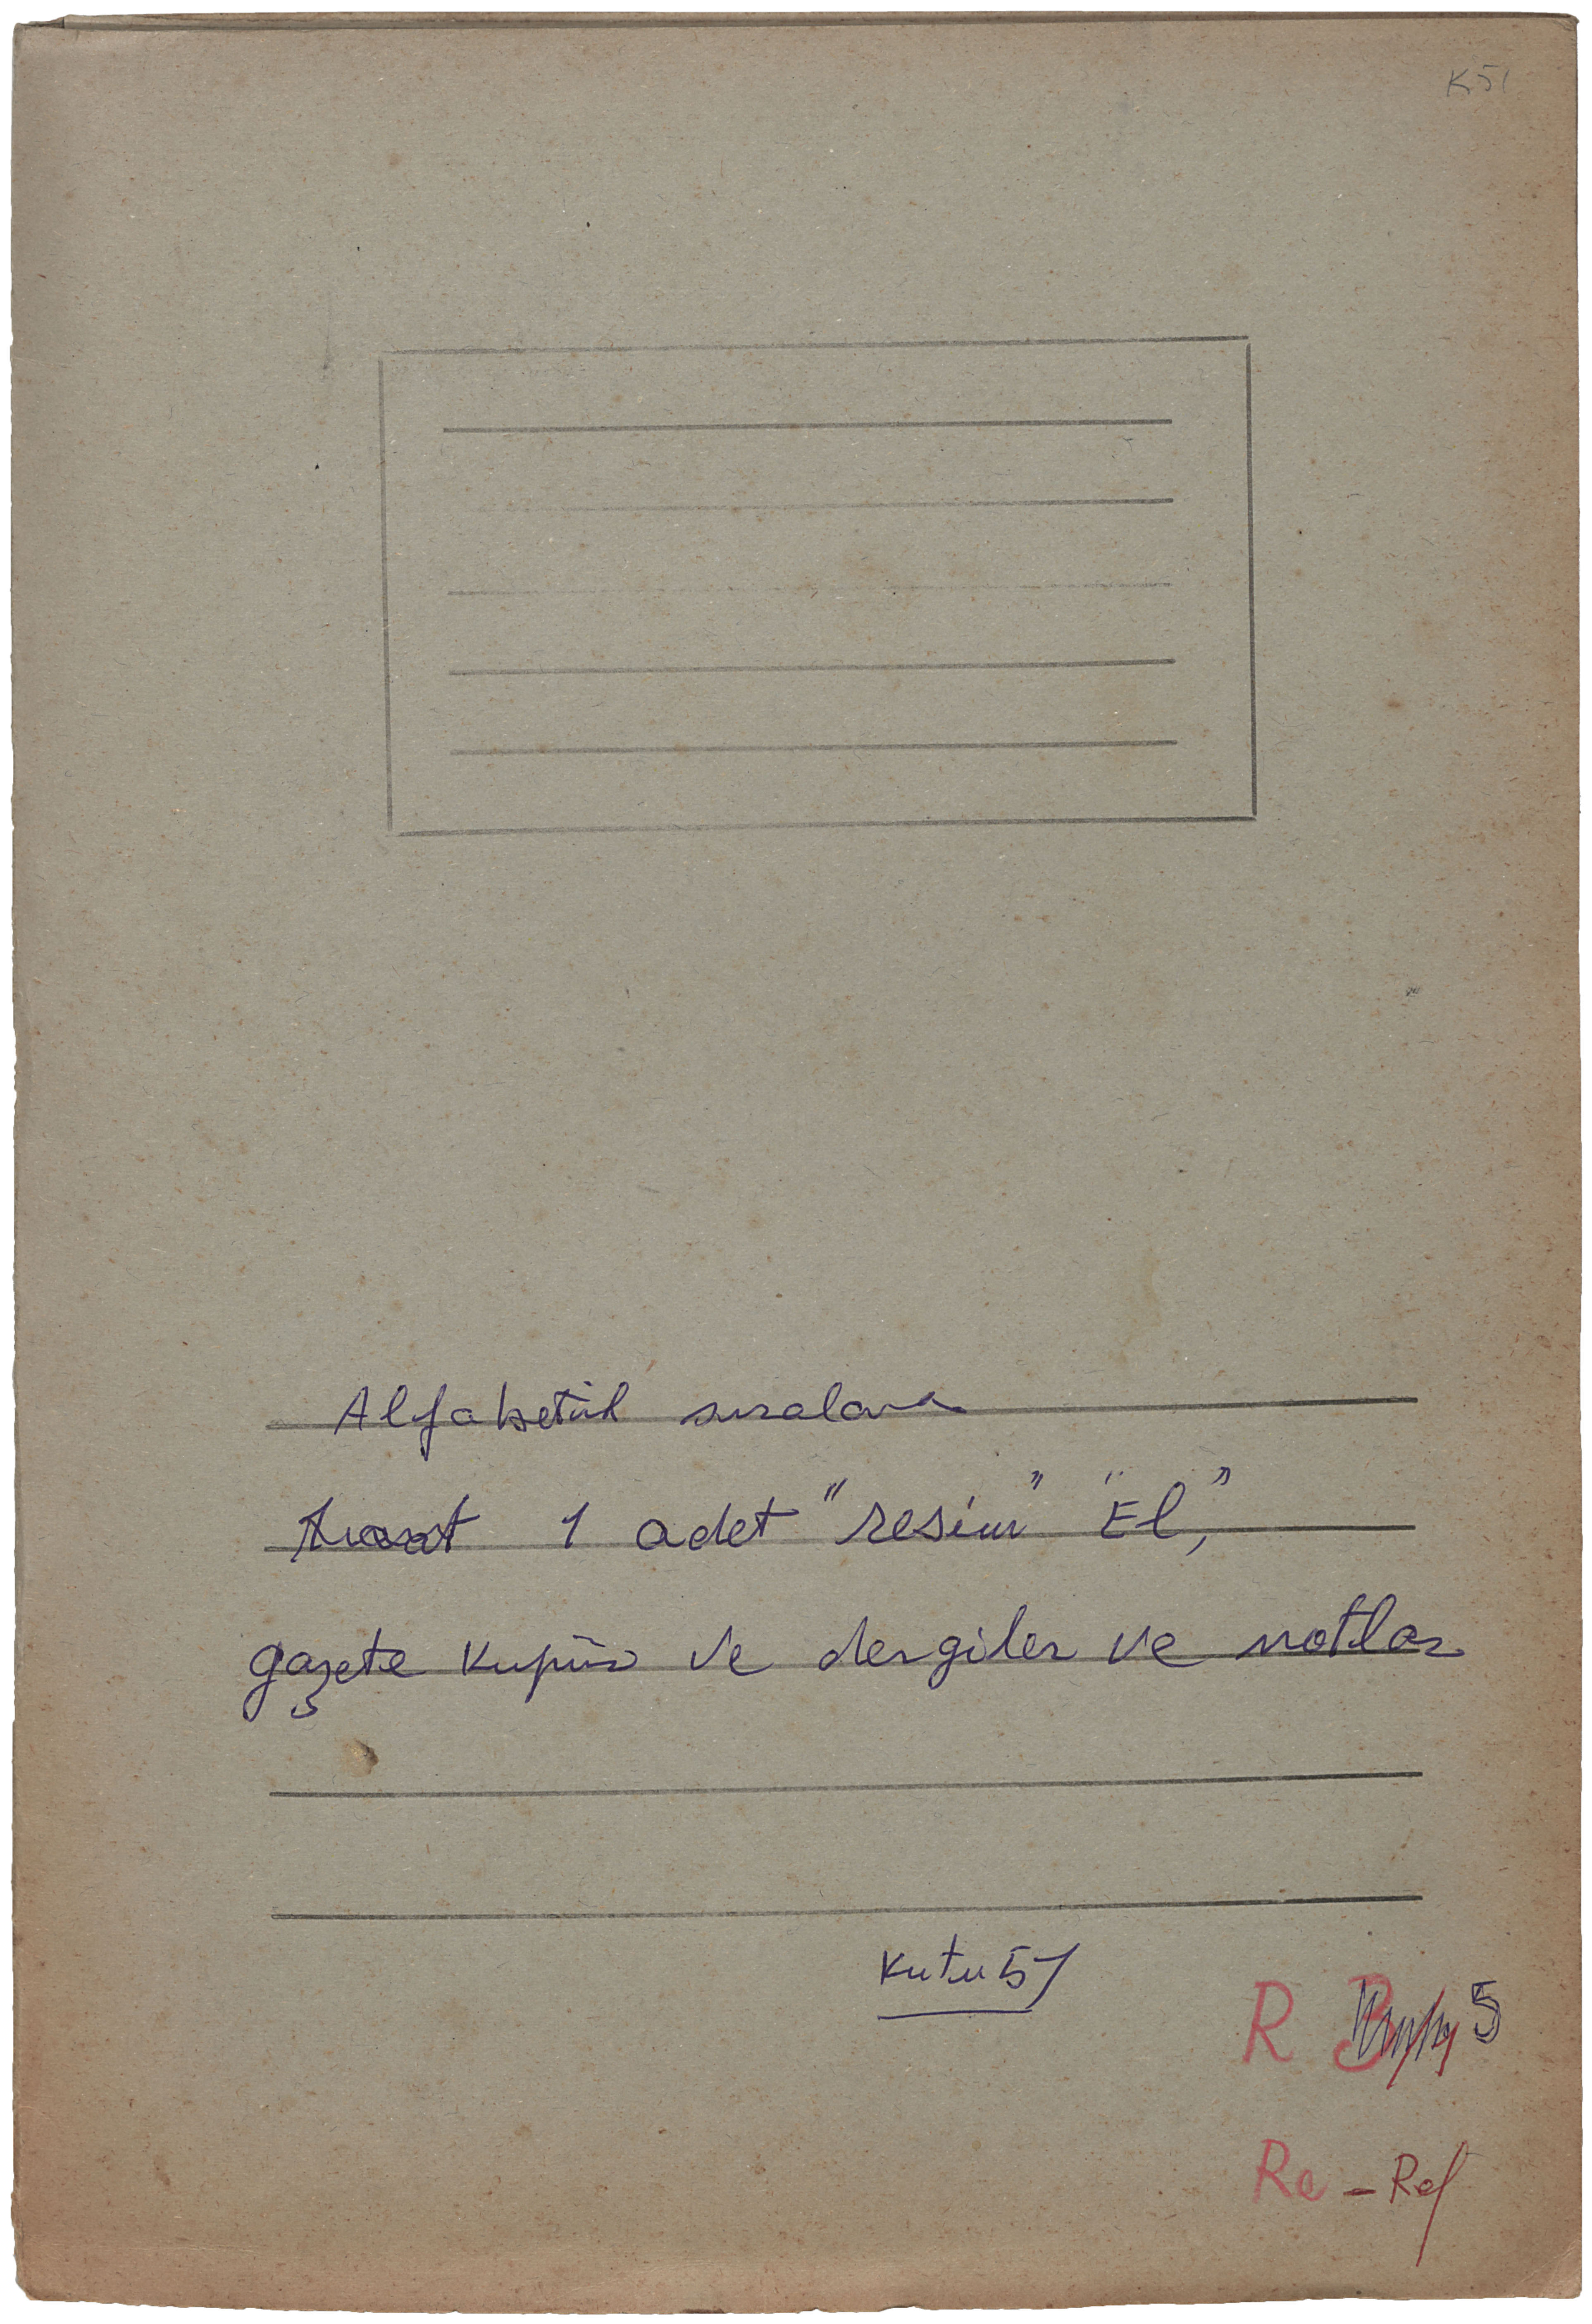 K51
Alfabetik sıralama
1 adet "resim" "El",
gazete kupür ve dergiler ve notlar
Kutu 51
R 5
Re - Ref